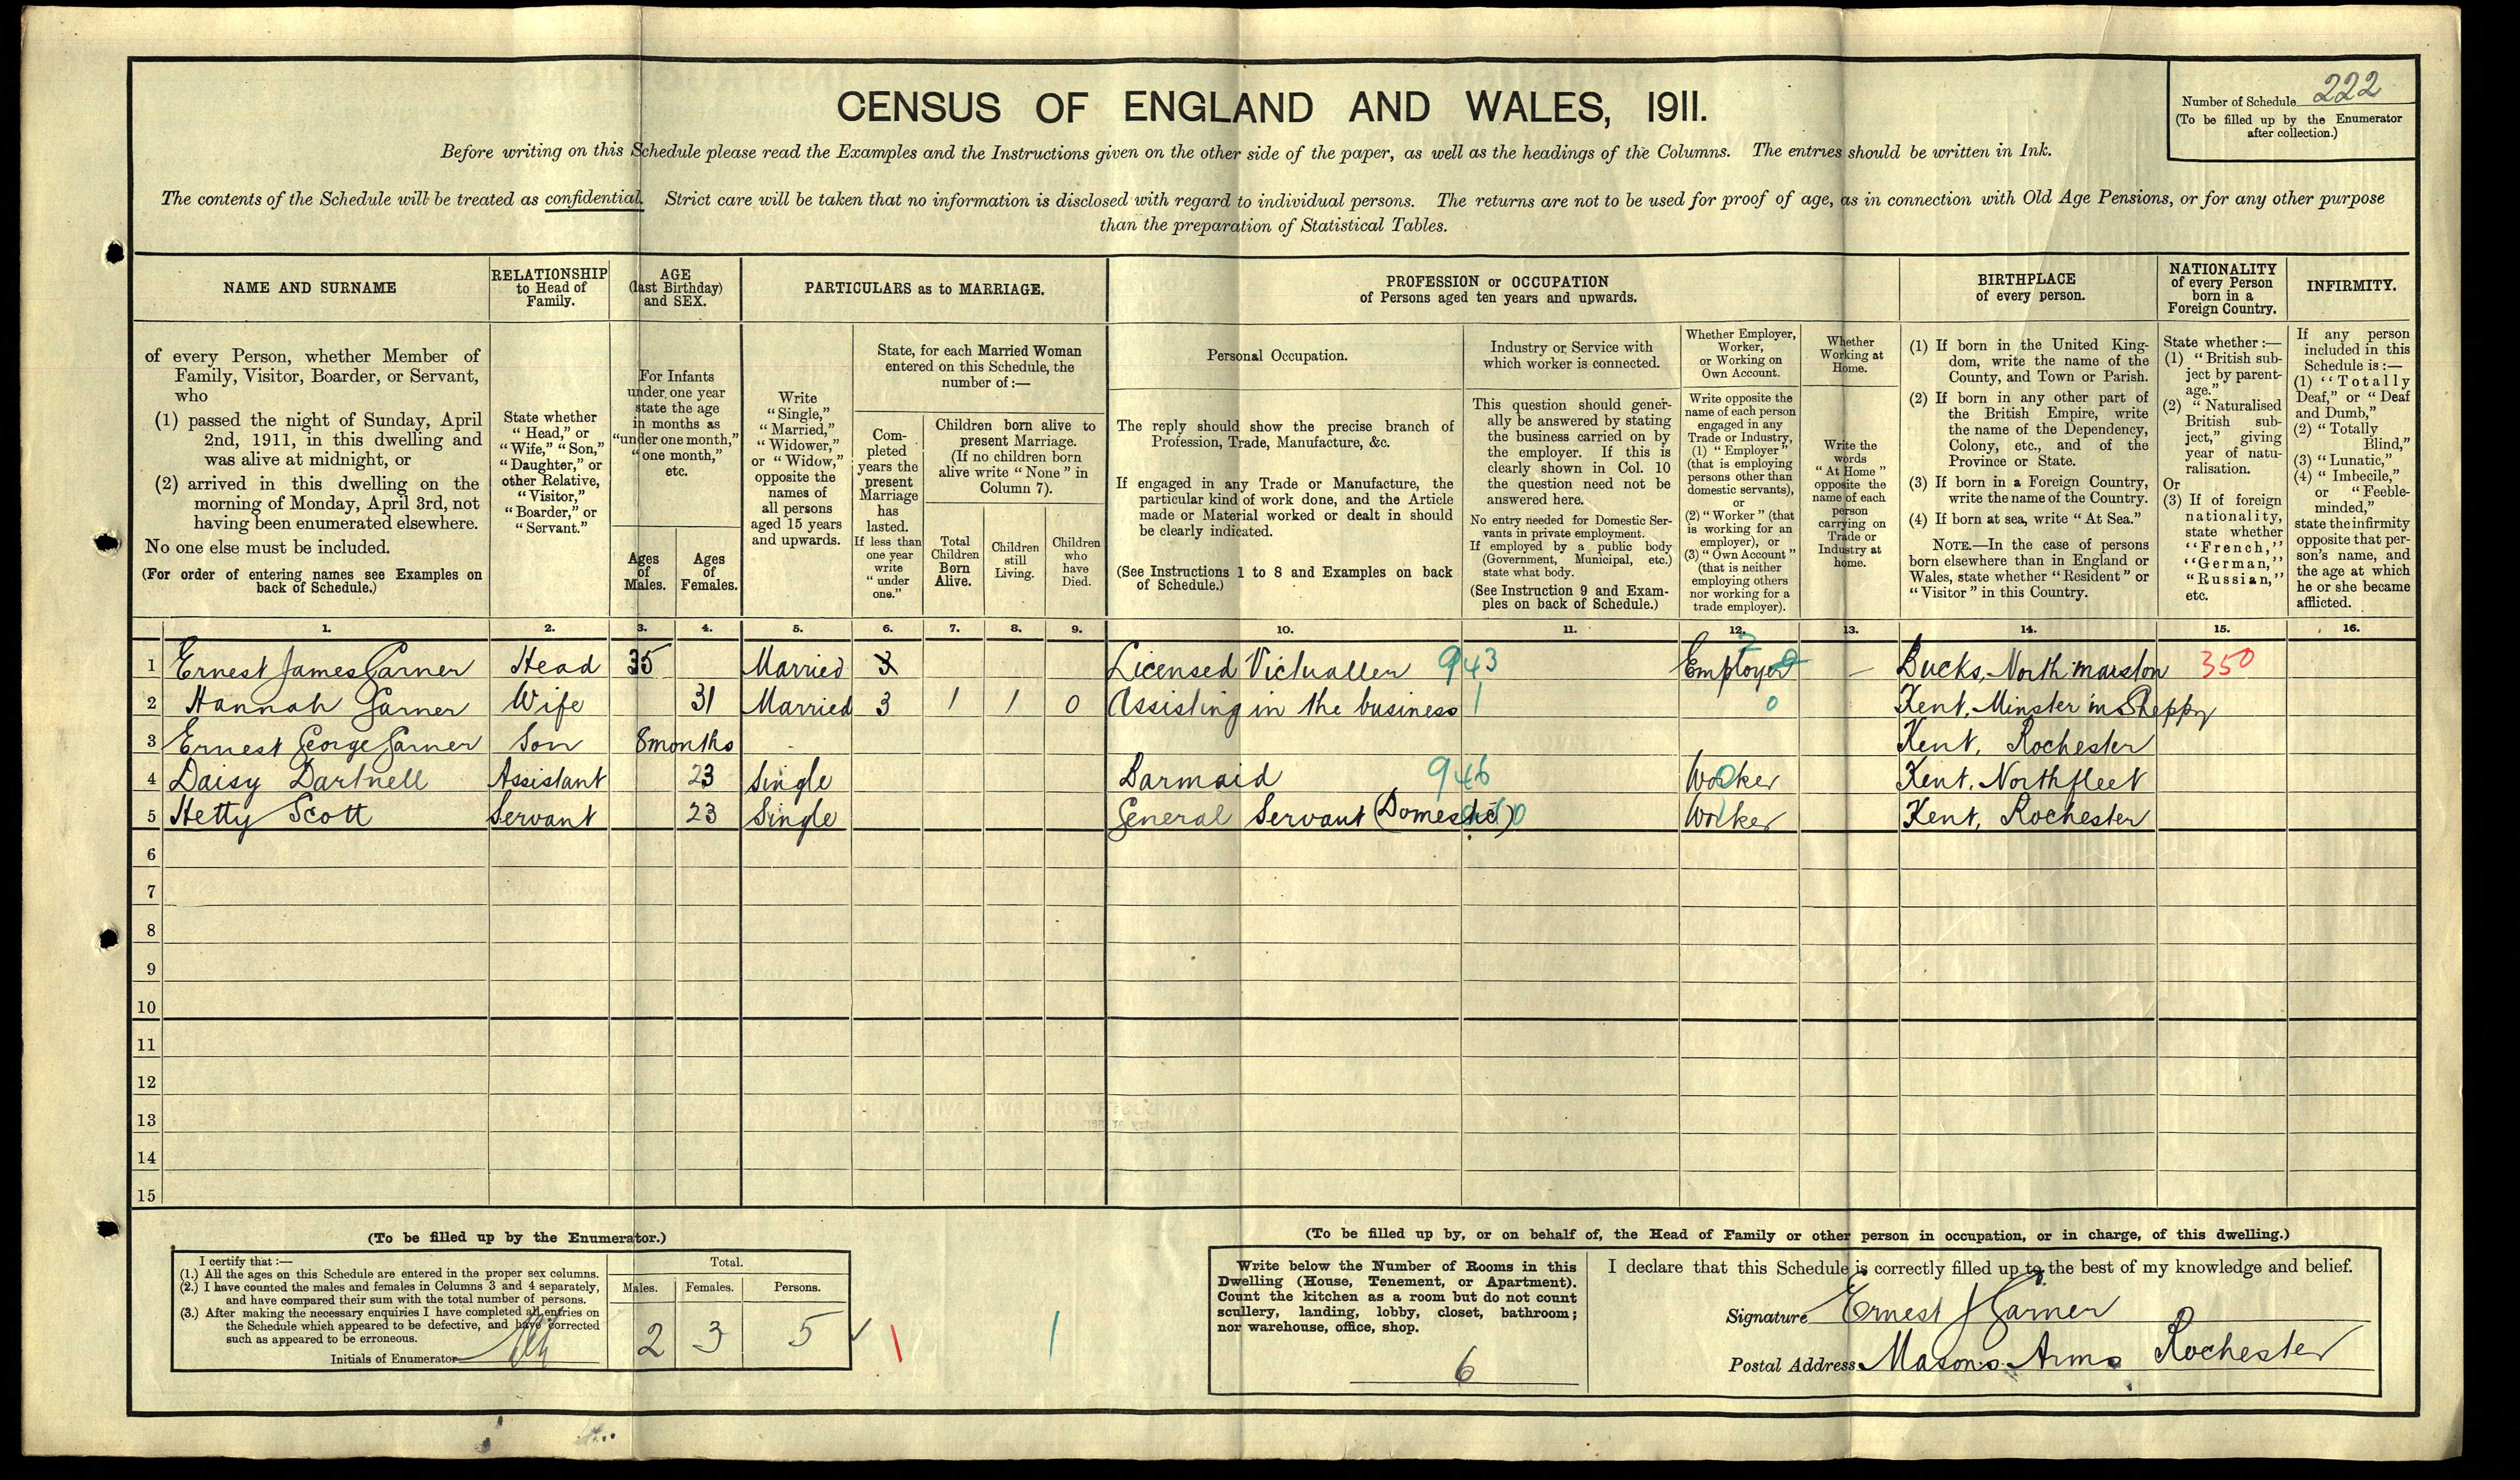 CENSUS OF ENGLAND AND WALES, 1911.
Number of Schedule 222
(To be filled up by the Enumerator
after collection.)
Before writing on this Schedule please read the Examples and the Instructions given on the other side of the paper, as well as the headings of the Columns. The entries should be written in Ink.
The contents of the Schedule will be treated as confidential. Strict care will be taken that no information is disclosed with regard to individual persons. The returns are not to be used for proof of age, as in connection with Old Age Pensions, or for any other purpose
than the preparation of Statistical Tables.
NAME AND SURNAME
of every Person, whether Member of
Family, Visitor, Boarder, or Servant,
who
(1) passed the night of Sunday, April
2nd, 1911, in this dwelling and
was alive at midnight, or
(2) arrived in this dwelling on the
morning of Monday, April 3rd, not
having been enumerated elsewhere.
No one else must be included.
(For order of entering names see Examples on
back of Schedule.)
RELATIONSHIP
to Head of
Family.
State whether
"Head," or
"Wife," "Son,"
"Daughter," or
other Relative,
"Visitor,"
"Boarder," or
"Servant."
AGE
(last Birthday)
and SEX.
For Infants
under one year
state the age
in months as
"under one month,"
"one month,"
etc.
Ages
of
Males.
Ages
of
Females.
PARTICULARS as to MARRIAGE.
Write
"Single,"
"Married,"
"Widower,"
or "Widow,"
opposite the
names of
all persons
aged 15 years
and upwards.
State, for each Married Woman
entered on this Schedule, the
number of :—
Com-
pleted
years the
present
Marriage
has
lasted.
If less than
one year
write
"under
one."
Children born alive to
present Marriage.
(If no children born
alive write "None" in
Column 7).
Total
Children
Born
Alive.
Children
still
Living.
Children
who
have
Died.
PROFESSION or OCCUPATION
of Persons aged ten years and upwards.
Personal Occupation.
The reply should show the precise branch of
Profession, Trade, Manufacture, &c.
If engaged in any Trade or Manufacture, the
particular kind of work done, and the Article
made or Material worked or dealt in should
be clearly indicated.
(See Instructions 1 to 8 and Examples on back
of Schedule.)
Industry or Service with
which worker is connected.
This question should gener-
ally be answered by stating
the business carried on by
the employer. If this is
clearly shown in Col. 10
the question need not be
answered here.
No entry needed for Domestic Ser-
vants in private employment.
If employed by a public body
(Government, Municipal, etc.)
state what body.
(See Instruction 9 and Exam-
ples on back of Schedule.)
Whether Employer,
Worker,
or Working on
Own Account.
Write opposite the
name of each person
engaged in any
Trade or Industry,
(1) "Employer"
(that is employing
persons other than
domestic servants),
or
(2) "Worker" (that
is working for an
employer), or
(3) "Own Account"
(that is neither
employing others
nor working for a
trade employer).
Whether
Working at
Home.
Write the
words
"At Home"
opposite the
name of each
person
carrying on
Trade or
Industry at
home.
BIRTHPLACE
of every person.
(1) If born in the United King-
dom, write the name of the
County, and Town or Parish.
(2) If born in any other part of
the British Empire, write
the name of the Dependency,
Colony, etc., and of the
Province or State.
(3) If born in a Foreign Country,
write the name of the Country.
(4) If born at sea, write "At Sea."
NOTE.—In the case of persons
born elsewhere than in England or
Wales, state whether "Resident" or
"Visitor" in this Country.
NATIONALITY
of every Person
born in a
Foreign Country.
State whether :—
(1) "British sub-
ject by parent-
age."
(2) "Naturalised
British sub-
ject," giving
year of natu-
ralisation.
Or
(3) If of foreign
nationality,
state whether
"French,"
"German,"
"Russian,"
etc.
INFIRMITY.
If any person
included in this
Schedule is :—
(1) "Totally
Deaf," or "Deaf
and Dumb,"
(2) "Totally
Blind,"
(3) "Lunatic,"
(4) "Imbecile,"
or "Feeble-
minded,"
state the infirmity
opposite that per-
son's name, and
the age at which
he or she became
afflicted.
1. 2. 3. 4. 5. 6. 7. 8. 9. 10. 11. 12. 13. 14. 15. 16.
1 Ernest James Garner Head 35 Married 3 Licensed Victualler 943 Employer — Bucks, North Marston 350
2 Hannah Garner Wife 31 Married 3 1 1 0 Assisting in the business 1 0 Kent, Minster in Sheppy
3 Ernest George Garner Son 8 months - Kent, Rochester
4 Daisy Dartnell Assistant 23 Single Barmaid 946 Worker Kent, Northfleet
5 Hetty Scott Servant 23 Single General Servant (Domestic) Worker Kent, Rochester
6
7
8
9
10
11
12
13
14
15
(To be filled up by the Enumerator.)
I certify that :—
(1.) All the ages on this Schedule are entered in the proper sex columns.
(2.) I have counted the males and females in Columns 3 and 4 separately,
and have compared their sum with the total number of persons.
(3.) After making the necessary enquiries I have completed all entries on
the Schedule which appeared to be defective, and have corrected
such as appeared to be erroneous.
Initials of Enumerator
Total.
Males. Females. Persons.
2 3 5
(To be filled up by, or on behalf of, the Head of Family or other person in occupation, or in charge, of this dwelling.)
Write below the Number of Rooms in this
Dwelling (House, Tenement, or Apartment).
Count the kitchen as a room but do not count
scullery, landing, lobby, closet, bathroom;
nor warehouse, office, shop.
6
I declare that this Schedule is correctly filled up to the best of my knowledge and belief.
Signature Ernest J Garner
Postal Address Masons Arms Rochester